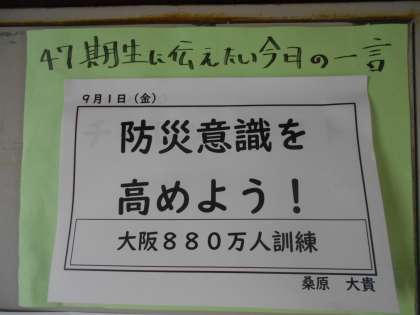 47期生に伝えたい今日の一言
9月1日(金)
防災意識を
高めよう!
大阪880万人訓練
桑原 大貴